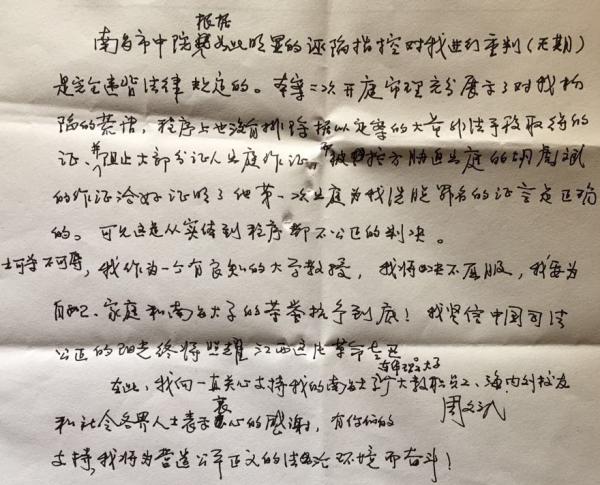 南昌市中院根据如此明显的诬陷指控对我进行重判（无期）
是完全违背法律规定的。本案二次开庭审理充分展示了对我构
陷的荒谬，程序上也没有排除据以定案的大量非法手段取得的
证，并阻止大部分证人出庭作证，被控方胁迫出庭的胡彪斌
的作证恰好证明了他第一次出庭为我洗脱罪名的证言是正确
的。可见这是从实体到程序都不公正的判决。
士可杀不可辱，我作为一个有良知的大学教授，我将决不屈服，我要为
自己、家庭和南昌大学的荣誉抗争到底！我坚信中国司法
公正的阳光终将照耀江西这片革命老区
在此，我向一直关心支持我的南昌大学广大教职员工、海内外校友
和社会各界人士表示衷心的感谢，有你们的
支持，我将为营造公平正义的法治环境而奋斗！
周文斌